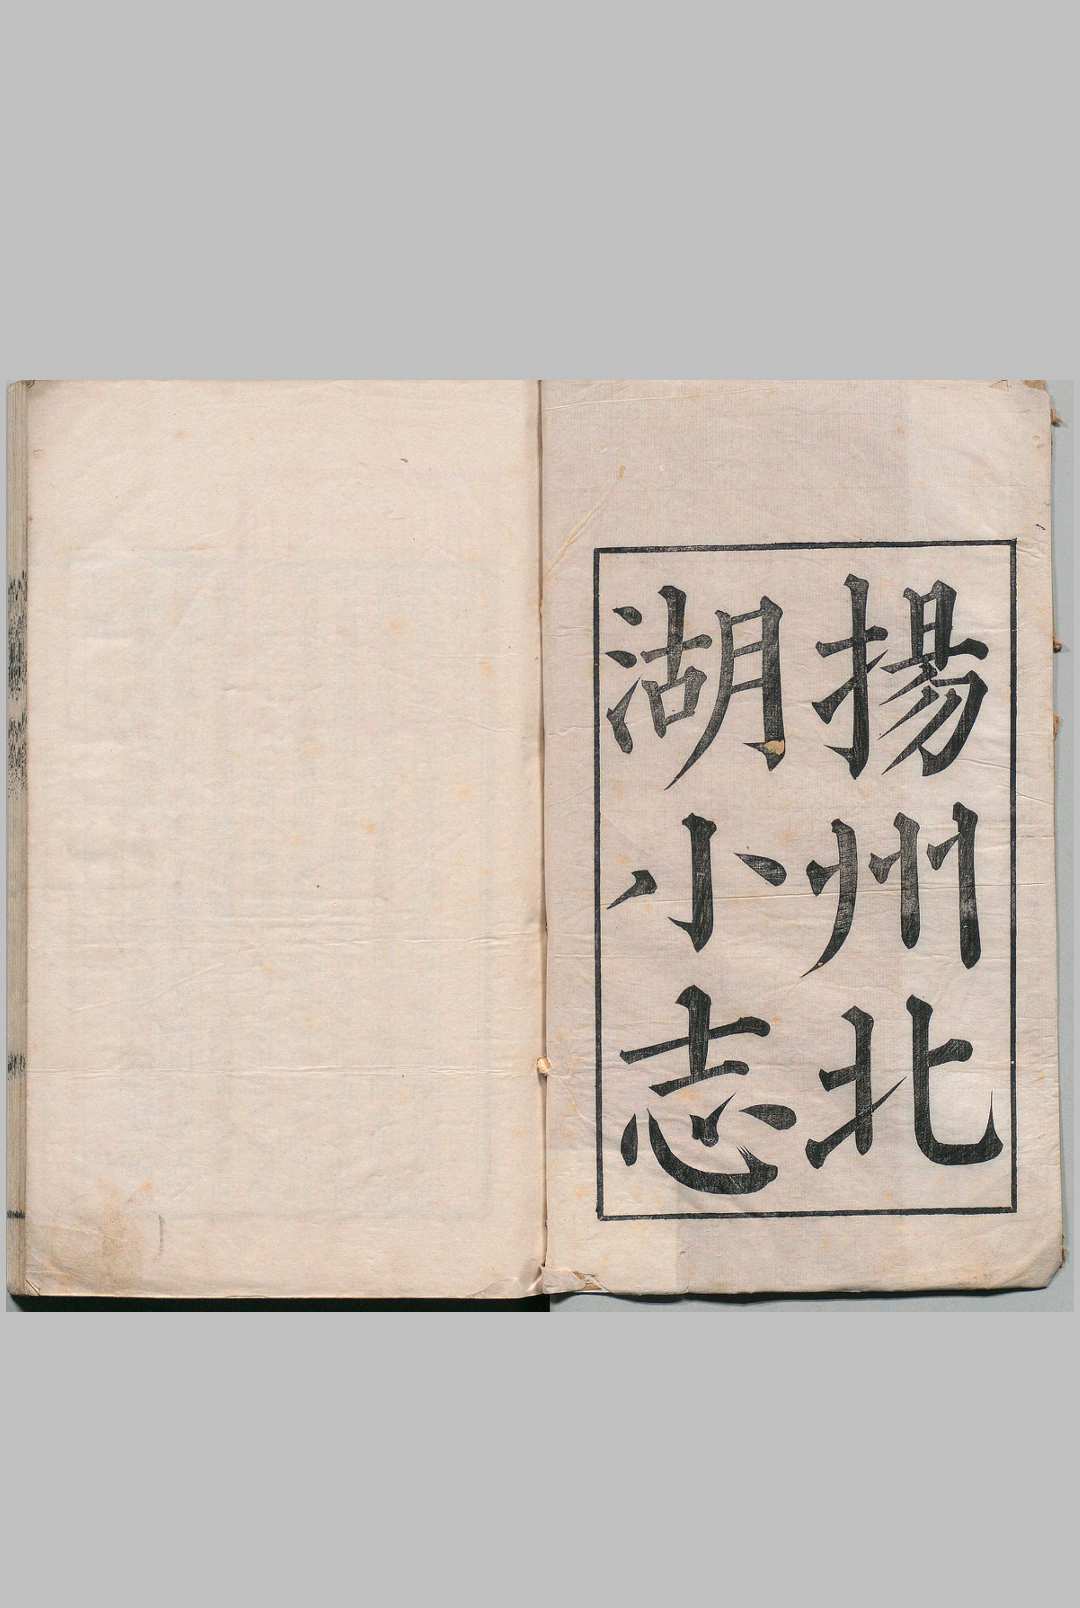 揚州北
湖小志